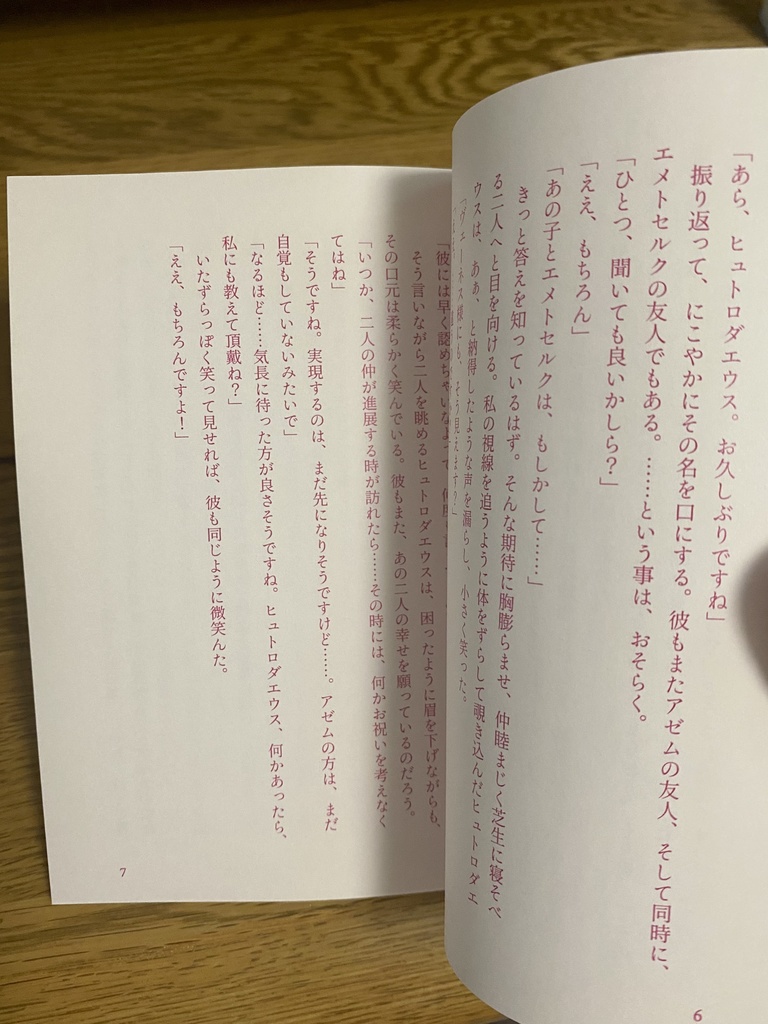 「あら、ヒュトロダエウス。お久しぶりですね」
振り返って、にこやかにその名を口にする。彼もまたアゼムの友人、そして同時に、
エメトセルクの友人でもある。……という事は、おそらく。
「ひとつ、聞いても良いかしら？」
「ええ、もちろん」
「あの子とエメトセルクは、もしかして……」
きっと答えを知っているはず。そんな期待に胸膨らませ、仲睦まじく芝生に寝そべ
る二人へと目を向ける。私の視線を追うように体をずらして覗き込んだヒュトロダエ
ウスは、あぁ、と納得したような声を漏らし、小さく笑った。
「ヴェーネス様にも、そう見えます？」
6
「彼には早く認めちゃいなよって
そう言いながら二人を眺めるヒュトロダエウスは、困ったように眉を下げながらも、
その口元は柔らかく笑んでいる。彼もまた、あの二人の幸せを願っているのだろう。
「いつか、二人の仲が進展する時が訪れたら……その時には、何かお祝いを考えなく
てはね」
「そうですね。実現するのは、まだ先になりそうですけど……。アゼムの方は、まだ
自覚もしていないみたいで」
「なるほど……気長に待った方が良さそうですね。ヒュトロダエウス、何かあったら、
私にも教えて頂戴ね？」
いたずらっぽく笑って見せれば、彼も同じように微笑んだ。
「ええ、もちろんですよ！」
7